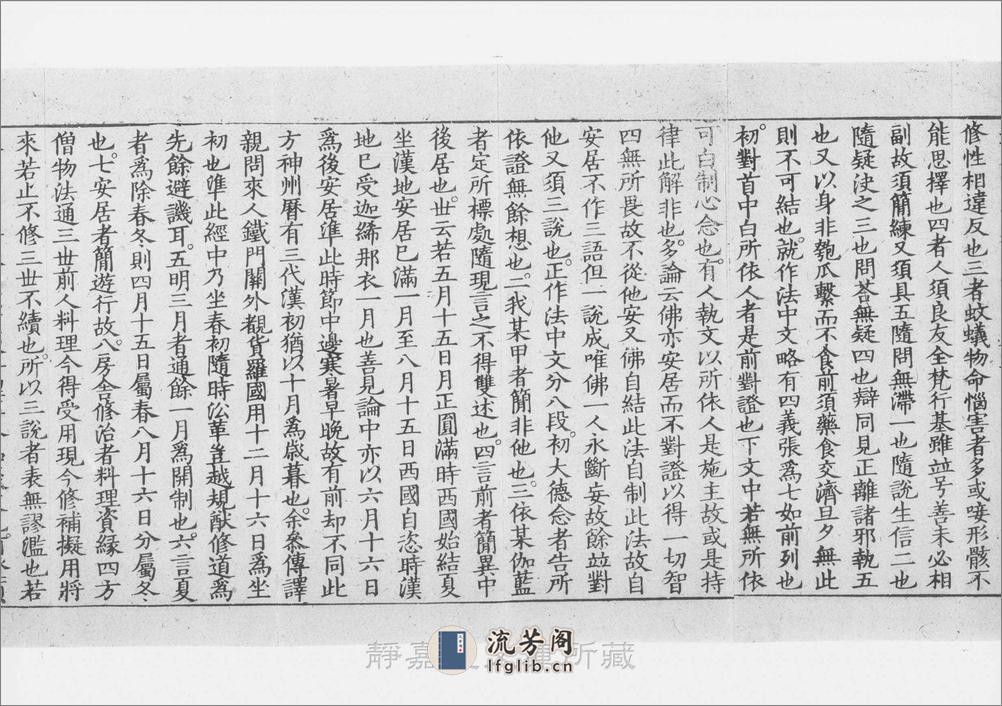 修性相違反也三者蚊蟻物命惱害者多或唼形骸不
能思擇也四者人須良友全梵行基雖並号善未必相
副故須簡練又須具五隨問無滯一也隨說生信二也
隨疑決之三也問荅無疑四也辯同見正離諸邪執五
也又以身非匏瓜繫而不食前須藥食交濟旦夕無此
則不可結也就作法中文略有四義張爲七如前列也
初對首中白所依人者是前對證也下文中若無所依
可白制心念也有人執文以所依人是施主故或是持
律此解非也多論云佛亦安居而不對證以得一切智
四無所畏故不從他安又佛自結此法自制此法故自
安居不作三語但一說成唯佛一人永斷妄故餘並對
他又須三說也正作法中文分八段初大德念者告所
依證無餘想也二我某甲者簡非他也三依某伽藍
者定所標處隨現言之不得雙述也四言前者簡異中
後居也世云若五月十五日月正圓滿時西國始結夏
坐漢地安居已滿一月至八月十五日西國自恣時漢
地已受迦絺那衣一月也善見論中亦以六月十六日
爲後安居準此時節中邊寒暑早晚故有前却不同此
方神州曆有三代漢初猶以十月爲歲暮也余叅傳譯
親問來人鐵門關外覩貨羅國用十二月十六日爲坐
初也準此經中乃坐春初隨時訟革豈越規猷修道爲
先餘避譏耳五明三月者通餘一月爲開制也六言夏
者爲除春冬則四月十五日屬春八月十六日分屬冬
也七安居者簡遊行故八房舍修治者料理資緣四方
僧物法通三世前人料理今得受用現今修補擬用將
來若止不修三世不續也所以三說者表無謬濫也若
靜嘉
所藏
流芳阁
lfglib.cn